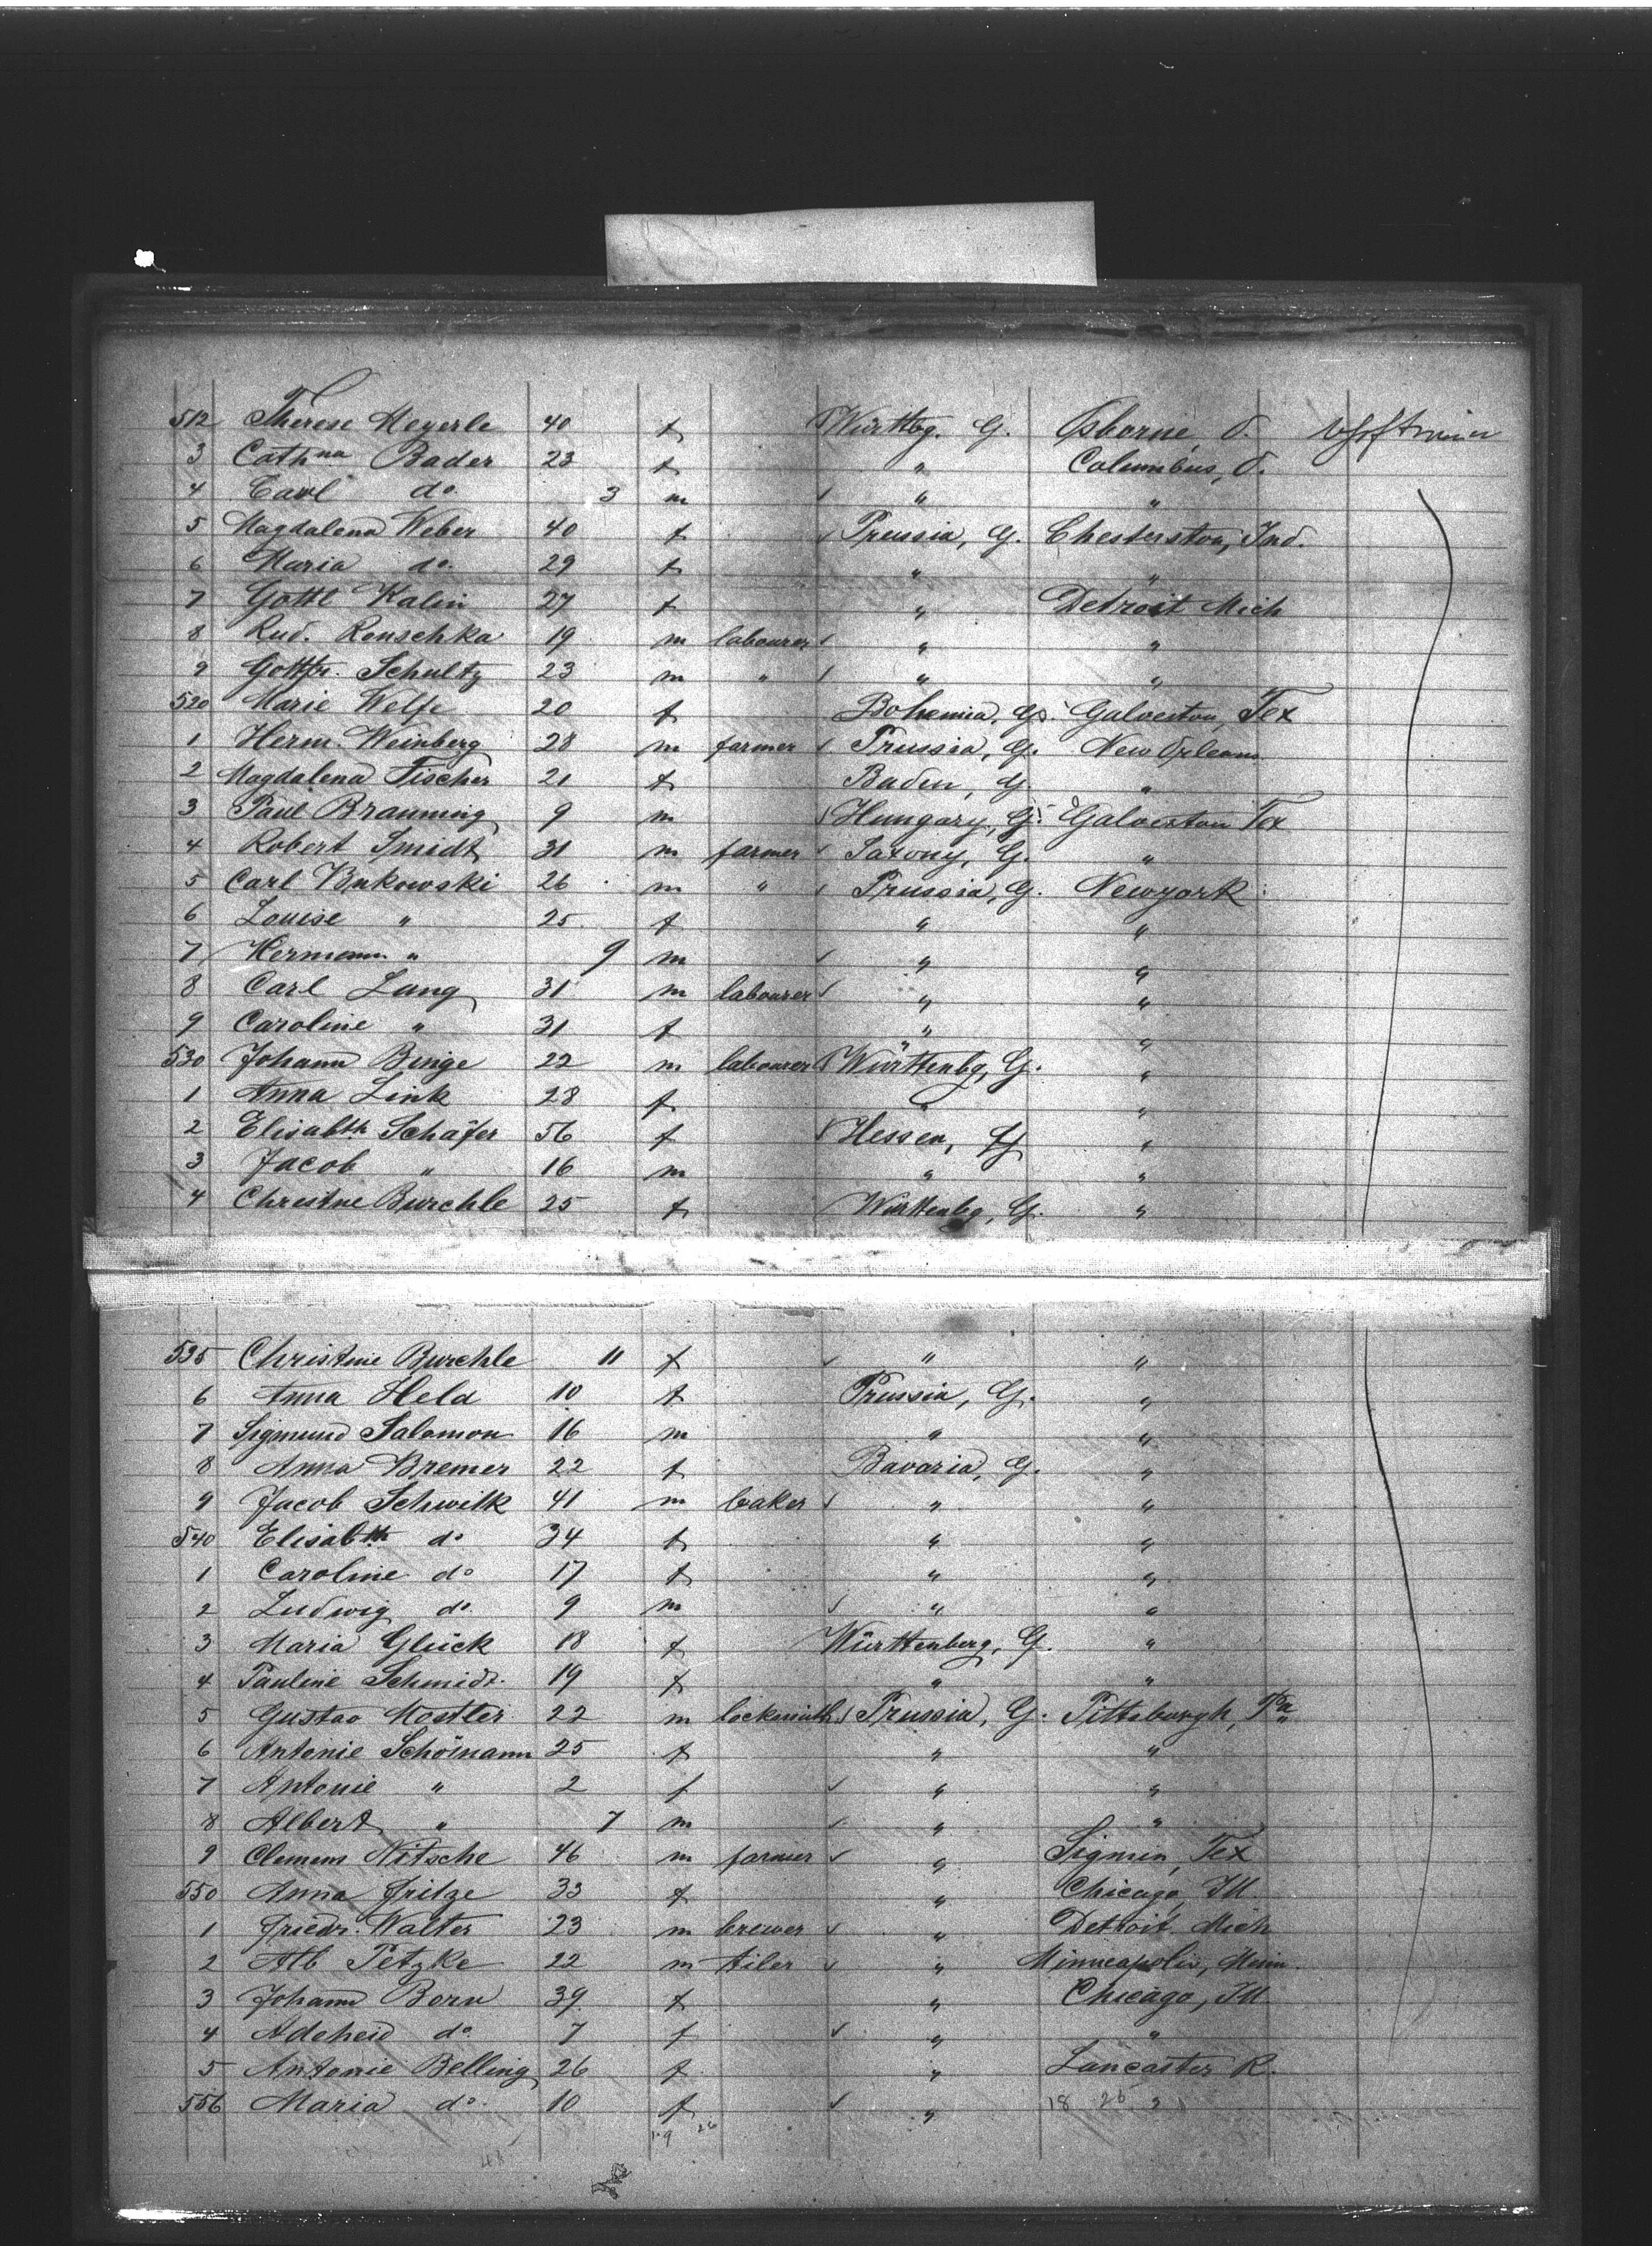 512 Therese Meyerle 40 f Württbg. G. Osborne, O.
3 Cathna Bader 23 f " Columbus, O.
4 Carl do 3 m " "
5 Magdalena Weber 40 f Prussia, G. Chesterston, Ind.
6 Maria do. 29 f " "
7 Gottl Kalin 27 f " Detroit Mich
8 Rud. Renschka 19 m labourer " "
9 Gottfr. Schultz 23 m " " "
520 Marie Welfe 20 f Bohemia, G. Galveston, Tex
1 Herm. Weinberg 28 m farmer Prussia, G. New Orleans
2 Magdalena Fischer 21 f Baden, G. "
3 Paul Brauning 9 m Hungary, G. Galveston Tex
4 Robert Smidt 31 m farmer Saxony, G. "
5 Carl Bukowski 26 m " Prussia, G. Newyork
6 Louise " 25 f " "
7 Hermann " 9 m " "
8 Carl Lung 31 m labourer " "
9 Caroline " 31 f " "
530 Johann Binge 22 m labourer Württenbg, G. "
1 Anna Link 28 f " "
2 Elisabth Schäfer 56 f Hessen, G "
3 Jacob " 16 m " "
4 Christne Burchle 25 f Württenbg, G. "
535 Christine Burchle 11 f " "
6 Anna Held 10 f Prussia, G. "
7 Sigmund Salomon 16 m " "
8 Anna Bremer 22 f Bavaria, G. "
9 Jacob Schwilk 41 m baker " "
540 Elisabth do 34 f " "
1 Caroline do 17 f " "
2 Ludwig do. 9 m " "
3 Maria Glück 18 f Württenberg, G. "
4 Pauline Schmidt 19 f " "
5 Gustav Mostler 22 m locksmith Prussia, G. Pittsburgh, Pa
6 Antonie Schömann 25 f " "
7 Antonie " 2 f " "
8 Albert " 7 m " "
9 Clemens Nitsche 46 m farmer " Tex
550 Anna Fritze 33 f " Chicago, Ill
1 Friedr. Walter 23 m brewer " Detroit Mich
2 Alb Petzke 22 m tiler " Minneapolis, Minn.
3 Johann Born 39 f " Chicago, Ill
4 Adeheid do. 7 f " "
5 Antonie Belling 26 f " Lancaster R.
556 Maria do. 10 f "